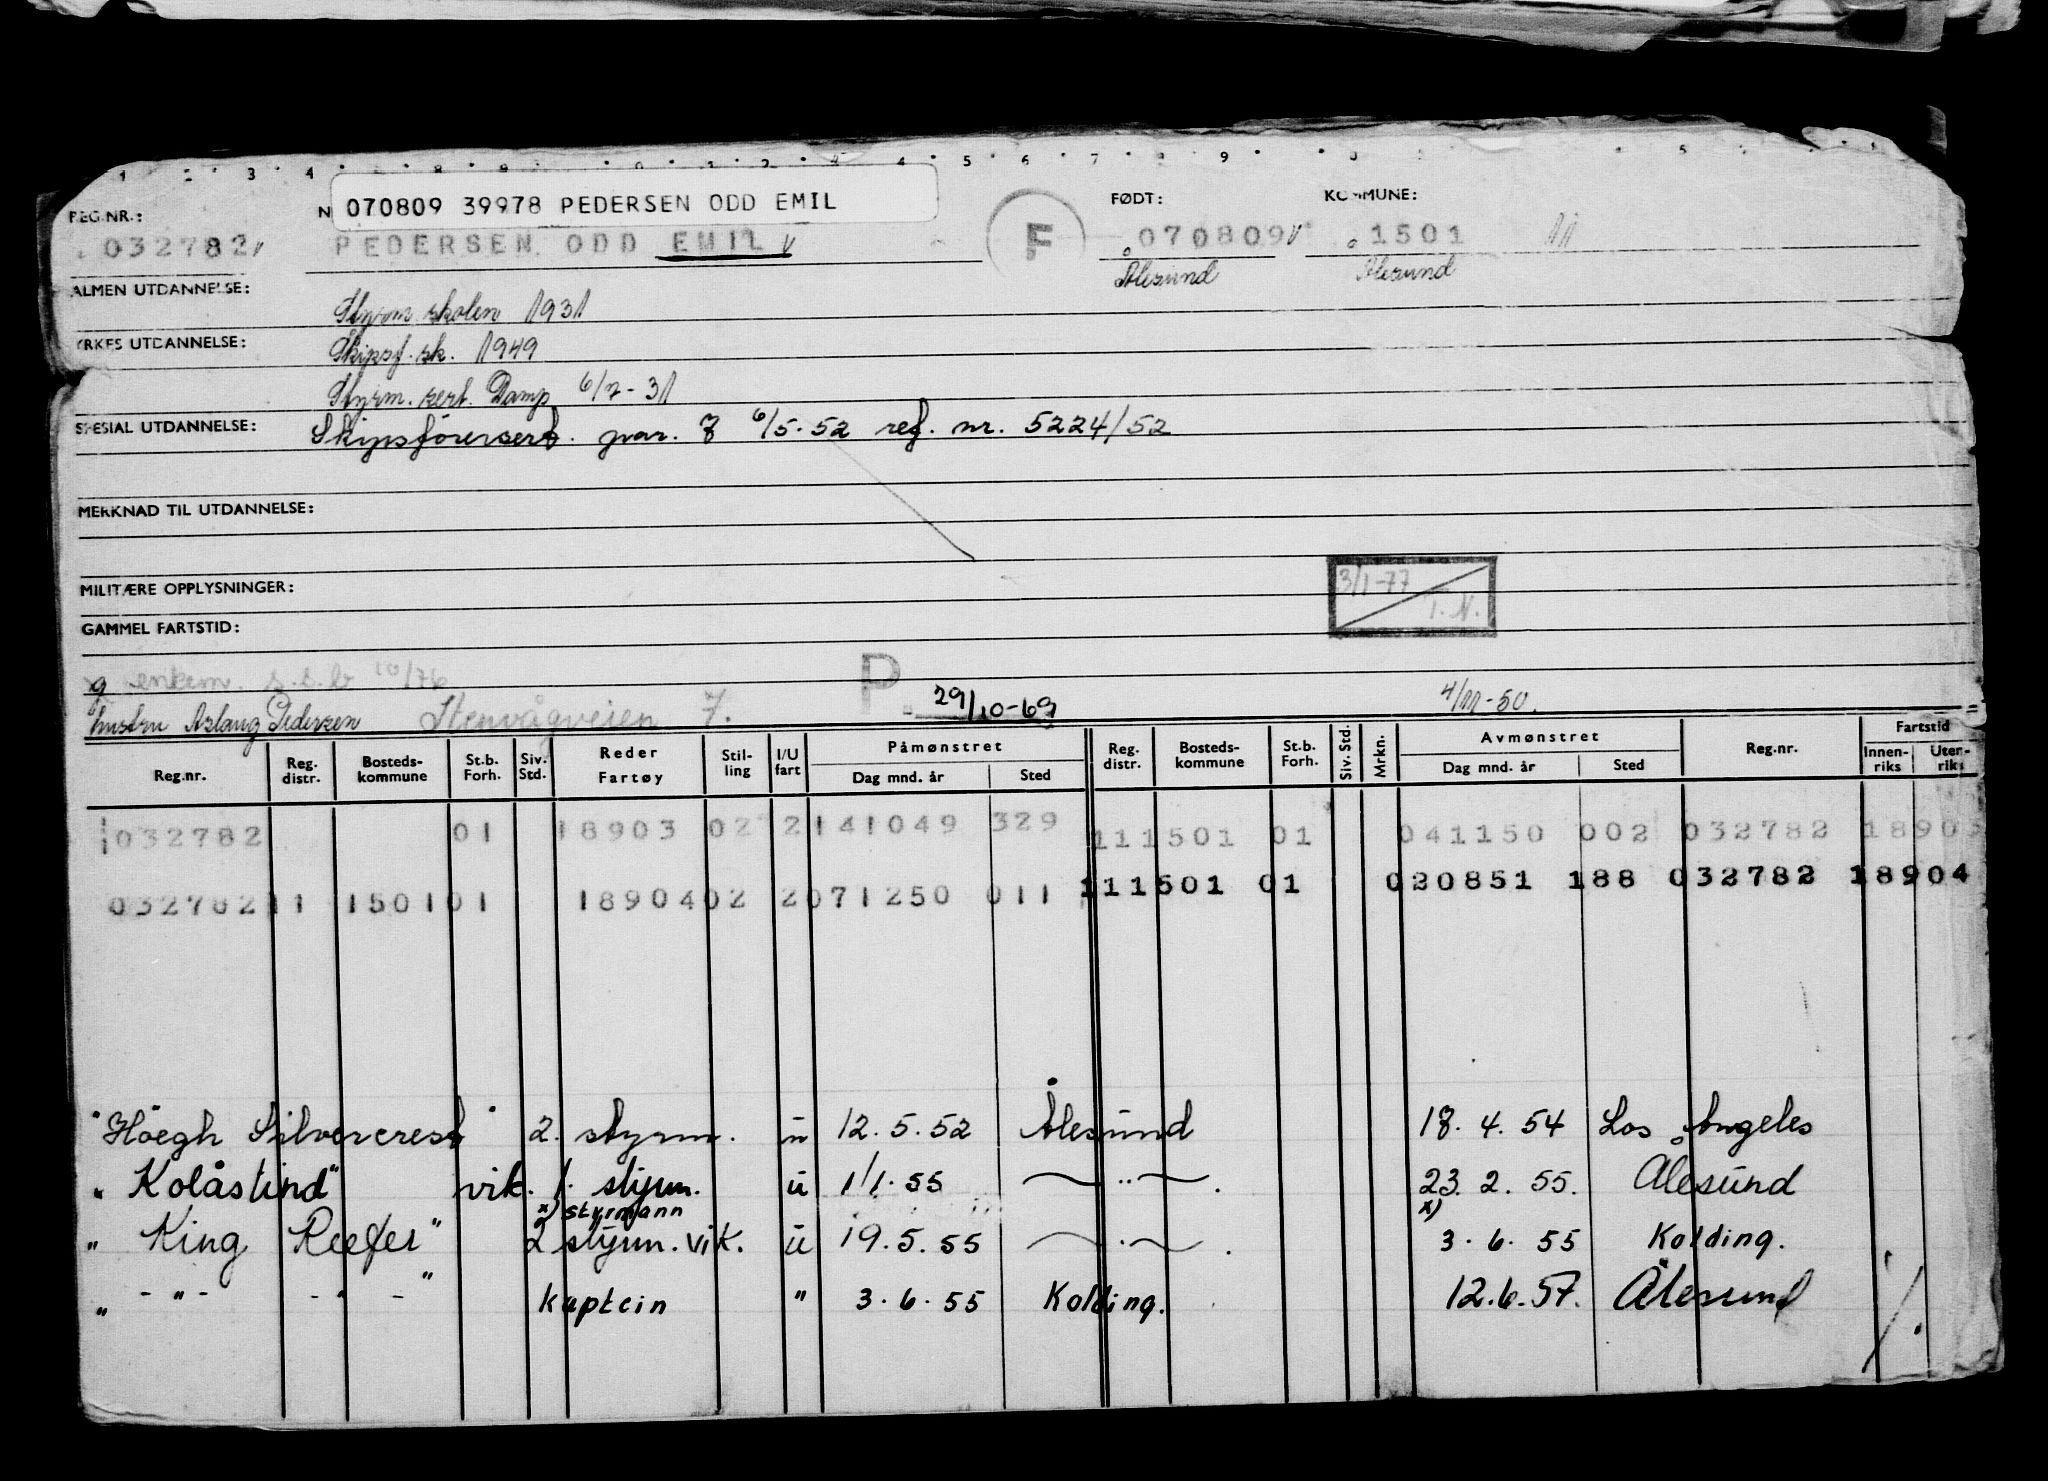 REG.NR.: 070809 39978 PEDERSEN ODD EMIL F FØDT: KOMMUNE:
032782 PEDERSEN ODD EMIL 070809 1501
Ålesund Ålesund
ALMEN UTDANNELSE:
Styrm. skolen 1931
YRKES UTDANNELSE: Skipsf. sk. 1949
Styrm. sert. Damp 6/7-31
SPESIAL UTDANNELSE: Skipsförersert. par. 7 6/5-52 ref. nr. 5224/52
MERKNAD TIL UTDANNELSE:
3/1-77
T.N.
MILITÆRE OPPLYSNINGER:
GAMMEL FARTSTID:
g enkem. s.s.b 10/76 P.
hustru Aslaug Pedersen Stenvågveien 7. 29/10-69 4/11-50.
Reg.nr. Reg. distr. Bosteds-kommune St.b. Forh. Siv. Std. Reder Fartøy Stil-ling I/U fart Påmønstret Dag mnd. år Sted Reg. distr. Bosteds-kommune St.b. Forh. Siv. Std. Mrkn. Avmønstret Dag mnd. år Sted Reg.nr. Fartstid Innen-riks Uten-riks
032782 01 18903 02 2 141049 329 11 1501 01 041150 002 032782 18903
032782 11 1501 01 18904 02 2 071250 011 11 1501 01 020851 188 032782 18904
"Höegh Silvercrest" 2. styrm. u 12.5.52 Ålesund 18.4.54 Los Angeles
"Kolåstind" vik. 1. styrm. u 1/1.55 —"— . 23.2.55. Ålesund
x) styrmann x)
"King Reefer" 2 styrm. vik. u 19.5.55 —"— . 3.6.55 Kolding.
" -"- -"- " kaptein " 3.6.55 Kolding. 12.6.57. Ålesund